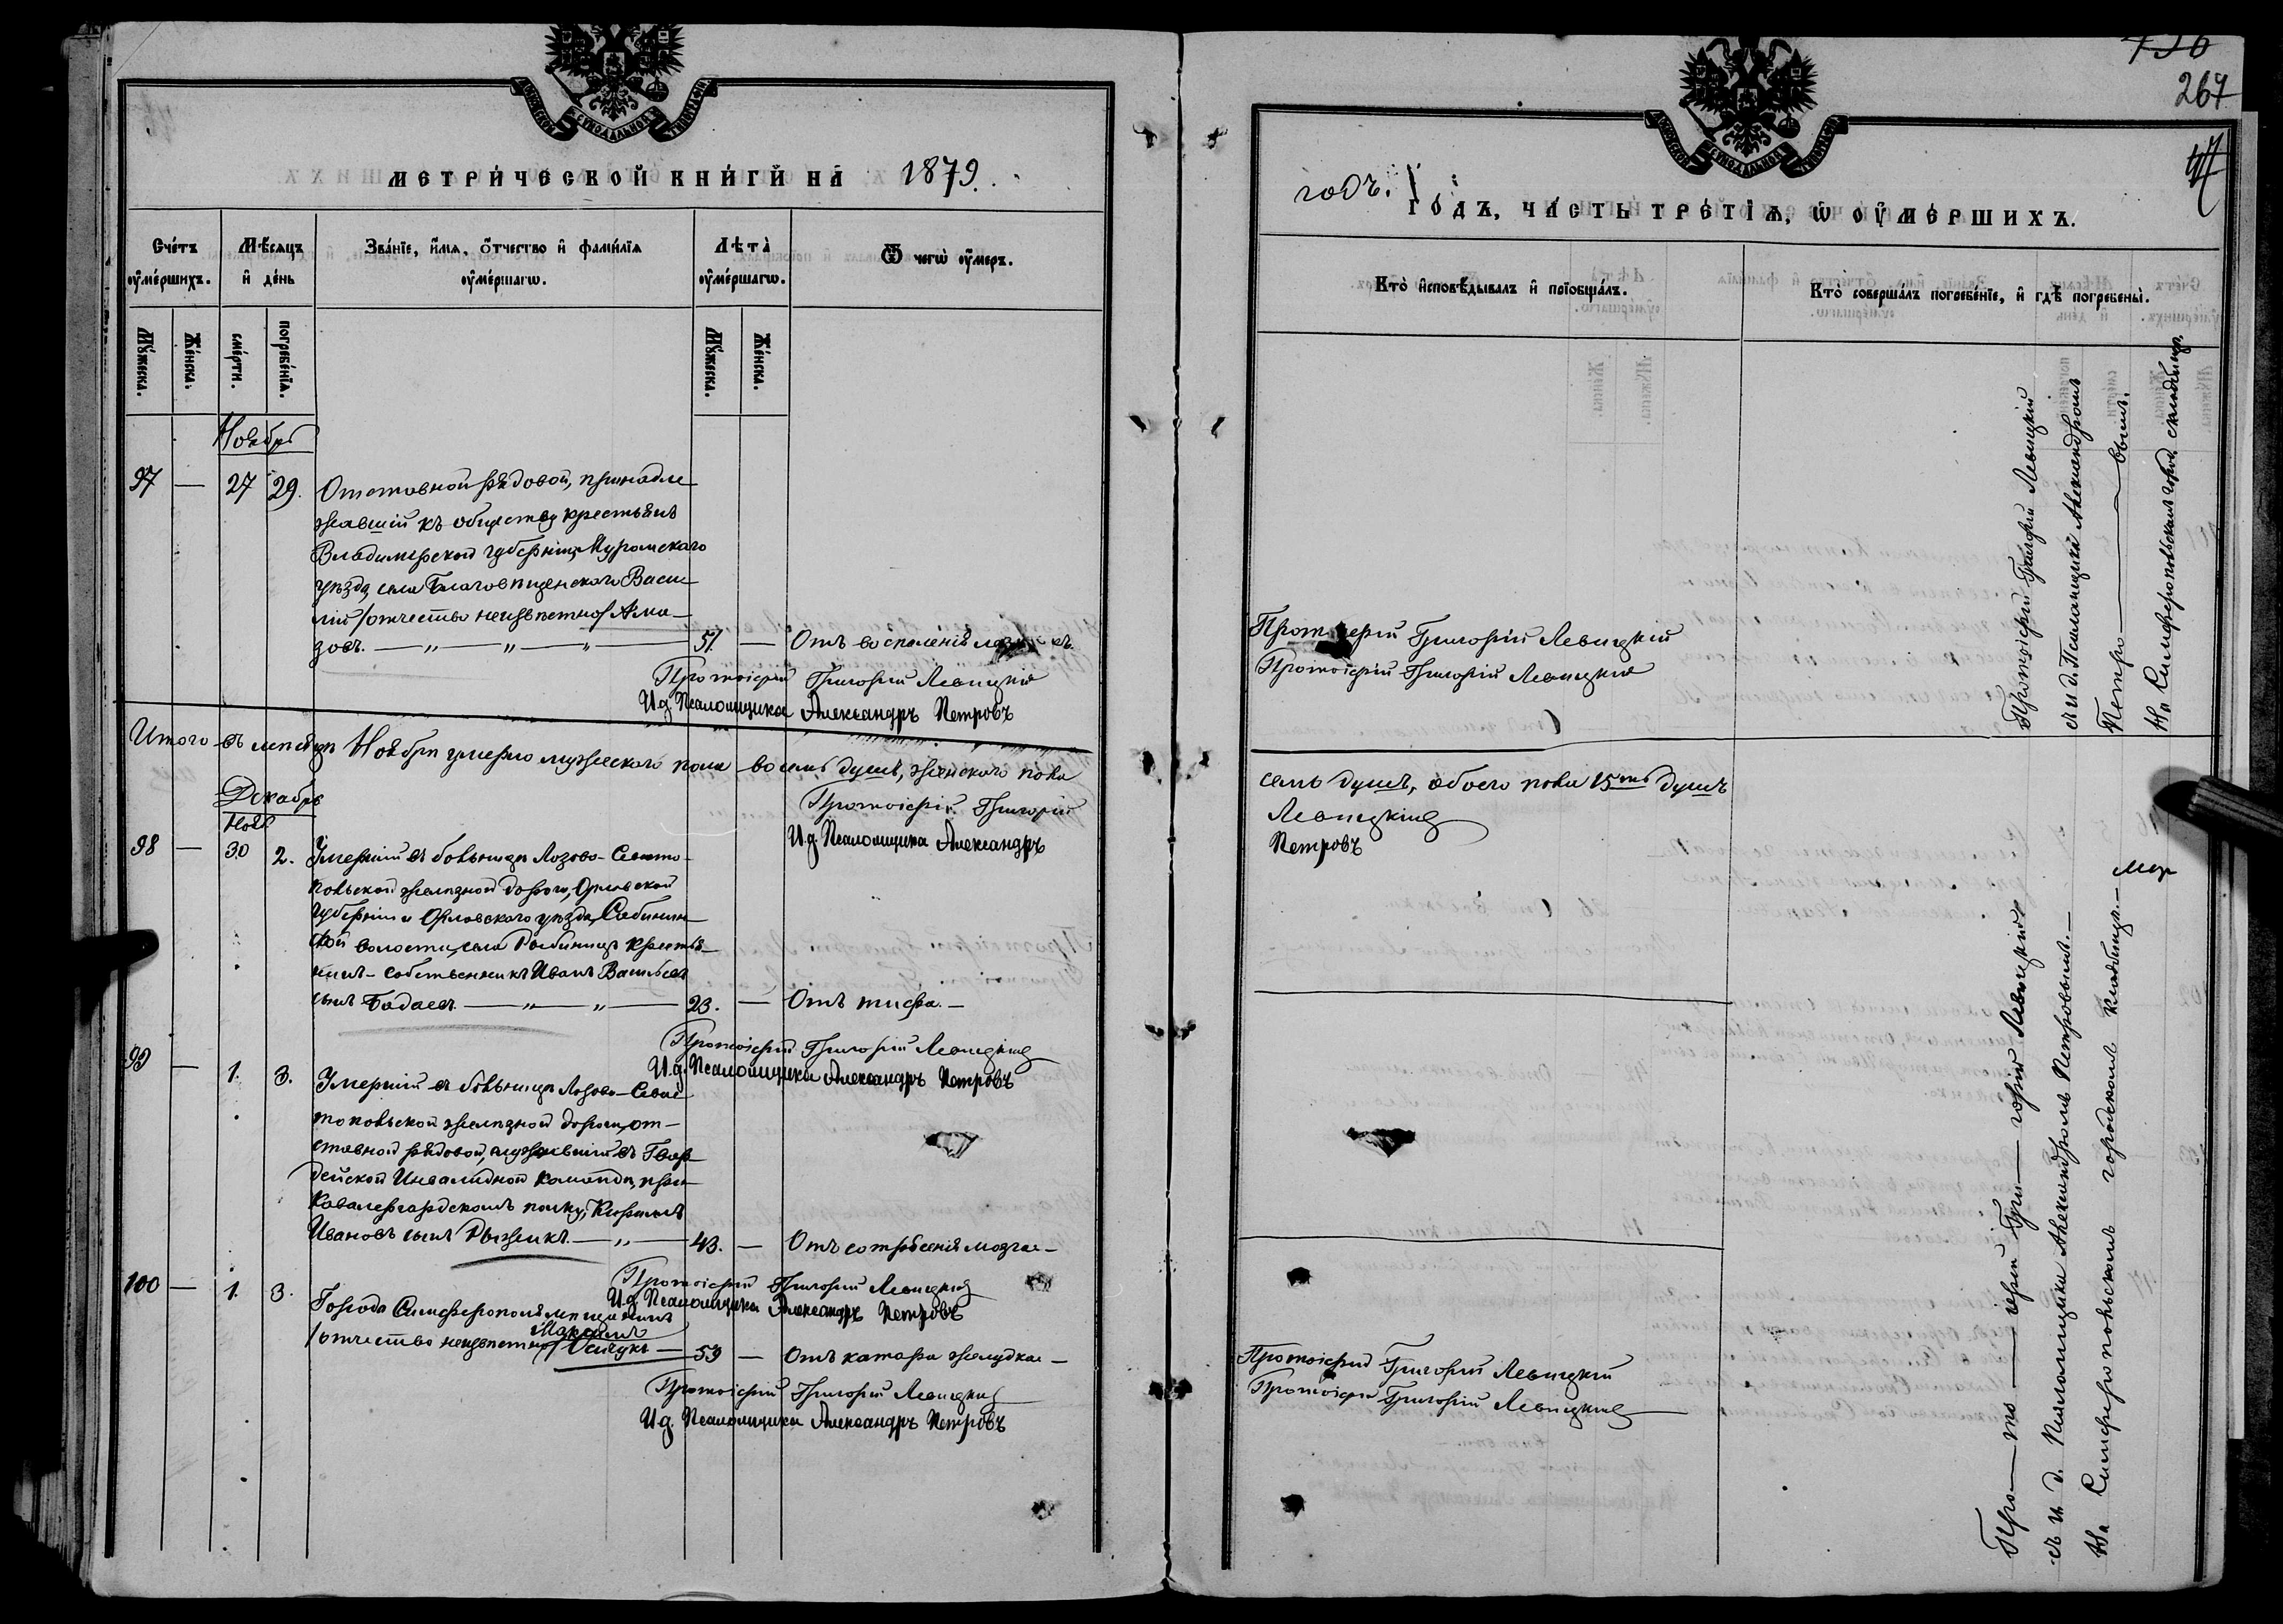 МЕТРИЧЕСКОЙ КНИГИ НА 1879.
Счетъ оумершихъ.
Мѣсяцъ и день
Званіе, имя, отчество и фамилія оумершагѡ.
Лѣта оумершагѡ.
Ѿ чегѡ оумеръ.
Мужеска.
Женска.
смерти.
погребенія.
Мужеска.
Женска.
Ноябрь
97 — 27 29. Отставной рядовой, принадле
жавшій къ обществу крестьянъ
Владимірской губерніи, Муромскаго
уѣзда, села Благовѣщенскаго Васи
лій /отчество неизвѣстно/ Ама—
зовъ. — „ — „ — „ — 51. — Отъ воспаленія
Протоіерей Григорій Левицкій
И.д. Псаломщика Александръ Петровъ
Итого въ мѣсяцѣ Ноябрѣ умерло мужескаго пола — восемь душъ, женскаго пола
Декабрь
Нояб
Протоіерей Григорій
И.д. Псаломщика Александръ
98 — 30 2. Умершій въ больницѣ Лозово-Севасто-
польской желѣзной дороги, Орловской
губерніи и Орловскаго уѣзда, Сабинин
ской волости, села крестья—
нинъ-собственникъ Иванъ Васильевъ
сынъ Бадаевъ — „ — „ — 23. — Отъ тифа. —
Протоіерей Григорій Левицкій
И.д. Псаломщика Александръ Петровъ
99 — 1. 3. Умершій въ больницѣ Лозово-Севас
топольской желѣзной дороги, от—
ставной рядовой, служившій въ Гвар
дейской Инвалидной командѣ, при
Кавалергардскомъ полку,
Ивановъ сынъ Рыжикъ. — „ — 43. — Отъ сотрясенія мозга. —
Протоіерей Григорій Левицкій
И.д. Псаломщика Александръ Петровъ
100 — 1. 3. Города Симферополя мѣщанинъ
/отчество неизвѣстно/ — 59 — Отъ катара желудка. —
Протоіерей Григорій Левицкій
И.д. Псаломщика Александръ Петровъ
267
годъ.
ГОДЪ, ЧАСТЬ ТРЕТІѦ, Ѡ ОУМЕРШИХЪ.
Кто исповѣдывалъ и пріобщалъ.
Кто совершалъ погребеніе, и гдѣ погребены.
Протоіерей Григорій Левицкій
Протоіерей Григорій Левицкій
Протоіерей Григорій Левицкій
съ и. д. Псаломщика Александромъ
Петро — вымъ.
На Симферопольскомъ город. кладбищѣ.
семь душъ, обоего пола 15ть душъ
Левицкій
Петровъ
Протоіерей Григорій Левицкій
Протоіерей Григорій Левицкій
Про — то — іерей Гри — горій Левицкій
съ и. д. Псаломщика Александромъ Петровымъ. —
На Симферопольскомъ городскомъ кладбищѣ. —